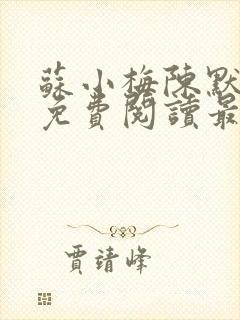 蘇小梅陳默
免費閱讀最
賈靖峰